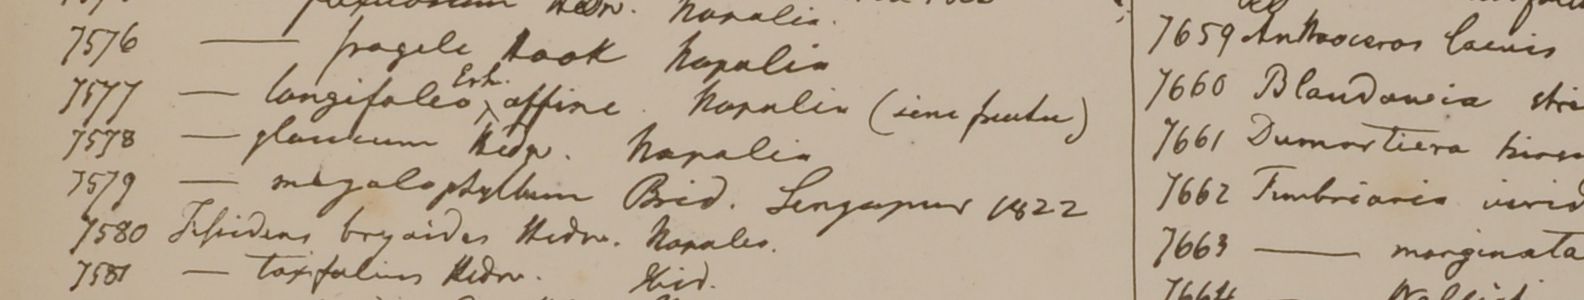 Hedw. Napalia.
7576 — fragele Hook Napalia
7577 — longifoleo Erh. affine Napalia (sine fructu)
7578 — glaucum Hedw. Napalia
7579 — megalophyllum Brid. Sengapur 1822
7580 Fissidens bryoides Hedw. Napalea.
7581 — taxifolius Hedw. Ibid.
7659 Anthoceros laevis
7660 Blandowia stri
7661 Dumortiera hirsu
7662 Fimbriaria virid
7663 — marginata
7664 —